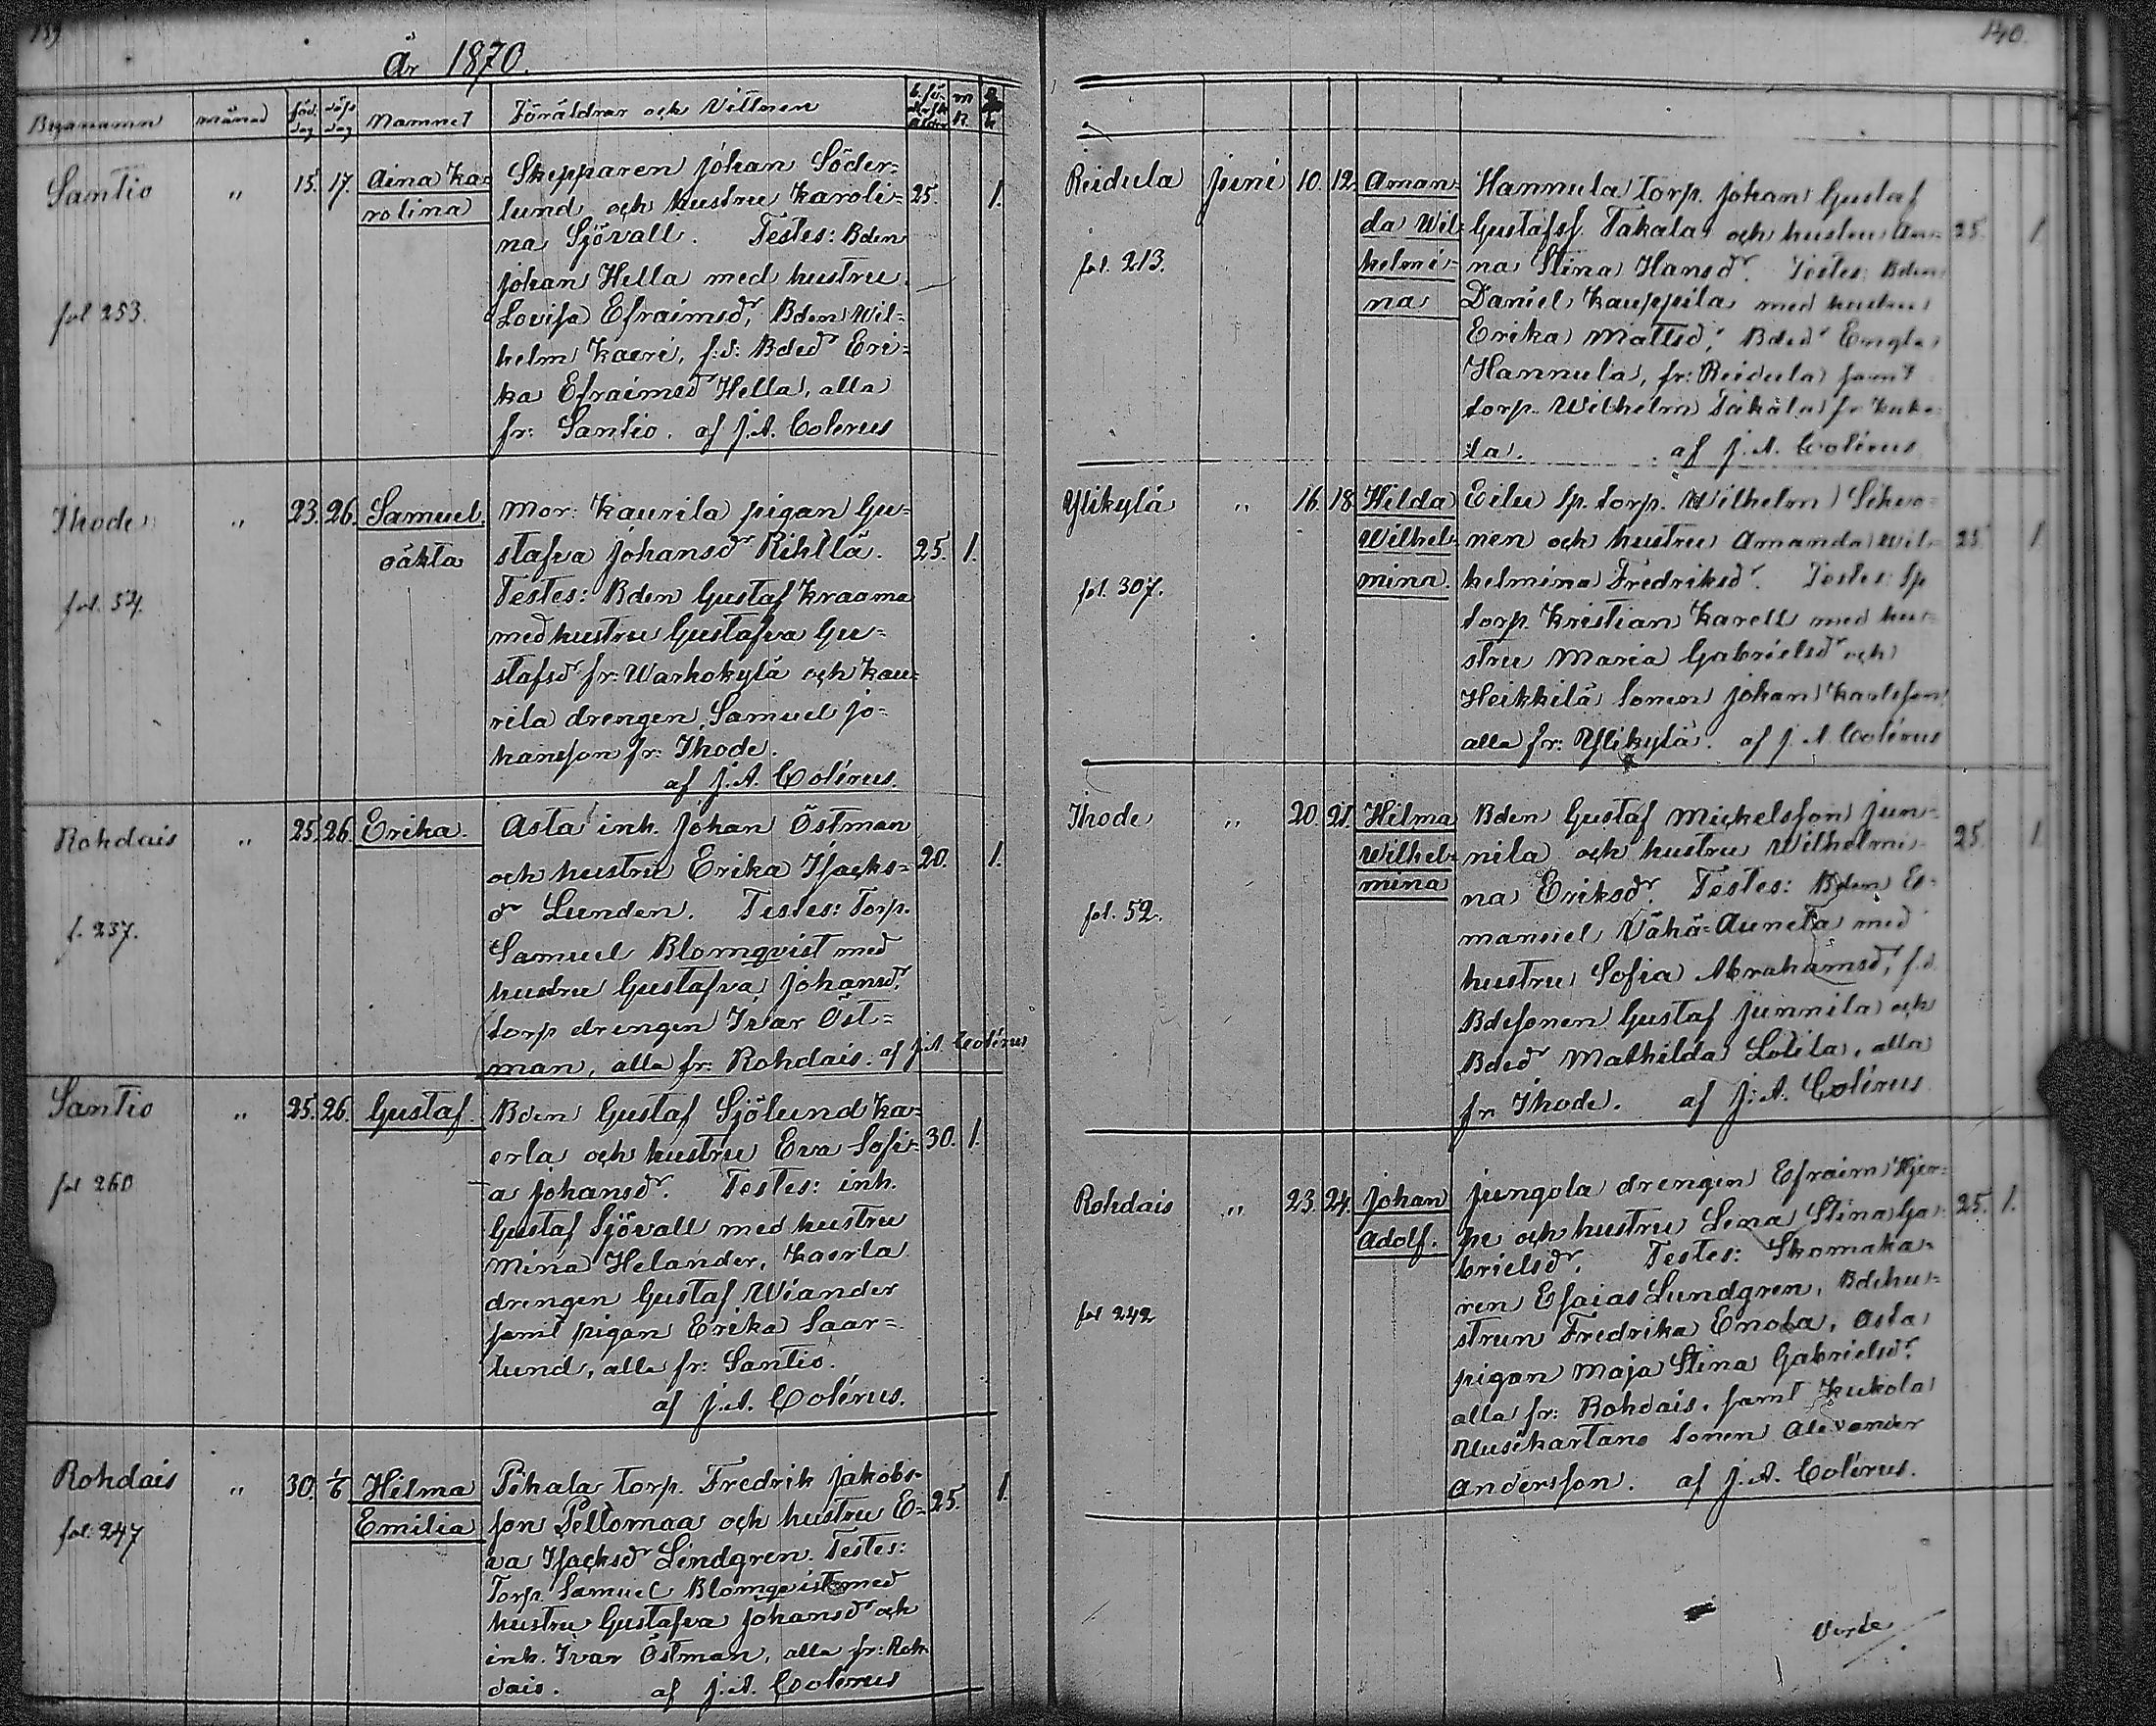 139
år 1870.
Byanamn månad föd. dag döps dag Namnet Föräldrar och Vittnen
Santio " 15. 17. Aina Ka= Skepparen Johan Söder=
rolina lund och hustru Karoli= 25. 1.
na Sjövall. Testes: Bden
Johan Hella med hustru
Lovisa Efraimsdr, Bden Wil=
fol 253. helm Kaeri, f:d: Bdedr Eri=
ka Efraimsdr Hella, alla
fr: Santio. af J. A. Colerus
Ihode " 23. 26. Samuel Mor: Kaurila pigan Gu=
oäkta stafva Johansdr Rihtlä. 25. 1.
fol. 54. Testes: Bden Gustaf Kraama
med hustru Gustafva Gu=
stafsdr fr: Warhokylä och Kau=
rila drengen Samuel Jo=
hansson fr: Ihode.
af J. A. Colérus.
Rohdais " 25. 26. Erika. Asta inh. Johan Östman
och hustru Erika Isacks= 20. 1.
dr Lunden. Testes: Torp.
f. 237. Samuel Blomqvist med
hustru Gustafva Johansdr,
torp drengen Ivar Öst=
man, alla fr: Rohdais. af J. A. Colérus
Santio " 25. 26. Gustaf. Bden Gustaf Sjölund Ka=
erla och hustru Eva Sofi= 30. 1.
fol 260 a Johansdr. Testes: inh.
Gustaf Sjövall med hustru
Mina Helander, Kaerla
drengen Gustaf Wiander
samt pigan Erika Saar=
lund, alla fr: Santio.
af J. A. Colérus.
Rohdais " 30. 1/6 Hilma Pihala torp. Fredrik Jakobs=
fol. 247 Emilia son Peltomaa och hustru E= 25. 1.
va Isacksdr Lindgren. Testes:
Torp. Samuel Blomqvist med
hustru Gustafva Johansdr och
inh. Ivar Östman, alla fr: Roh=
dais. af J. A. Colérus
140.
Reidula Juni 10. 12. Aman= Hannula torp. Johan Gustaf
da Wil= Gustafss. Takala och hustru An= 25. 1
fol. 213. helmi= na Stina Hansdr. Testes: Bden
na Daniel Kauppila med hustru
Erika Mattsdr, Bdedr Engla
Hannula, fr: Reidula samt
torp. Wilhelm Takala fr Kuko=
la. af J. A. Colérus
Ylikylä " 16. 18 Hilda Eilu sp. torp. Wilhelm Sihvo=
Wilhel= nen och hustru Amanda Wil= 25. 1
fol. 307. mina. helmina Fredriksdr. Testes: Sp
torp. Kristian Karell med hu=
stru Maria Gabrielsdr och
Heikkilä sonen Johan Karlsson
alla fr: Ylikylä. af J. A. Colérus
Ihode " 20. 21. Hilma Bden Gustaf Mickelsson Jun=
Wilhel= nila och hustru Wilhelmi= 25. 1
mina na Eriksdr. Testes: Bden E=
fol. 52. manuel Vähä=Auneta med
hustru Sofia Abrahamsdr, f.d.
Bdesonen Gustaf Junnila och
Bdedr Mathilda Lotila, alla
fr Ihode. af J. A. Colérus
Rohdais " 23. 24. Johan Jungola drengen Efraim Hjer=
Adolf. pe och hustru Lena Stina Ga= 25. 1.
brielsdr. Testes: Skomaka=
fol 242 ren Esaias Lundgren, Bdehu=
strun Fredrika Enola, Asta
pigan Maja Stina Gabrielsdr.
alla fr: Rohdais. samt Kukola
Uusikartano sonen Alexander
Andersson. af J. A. Colérus.
Verte